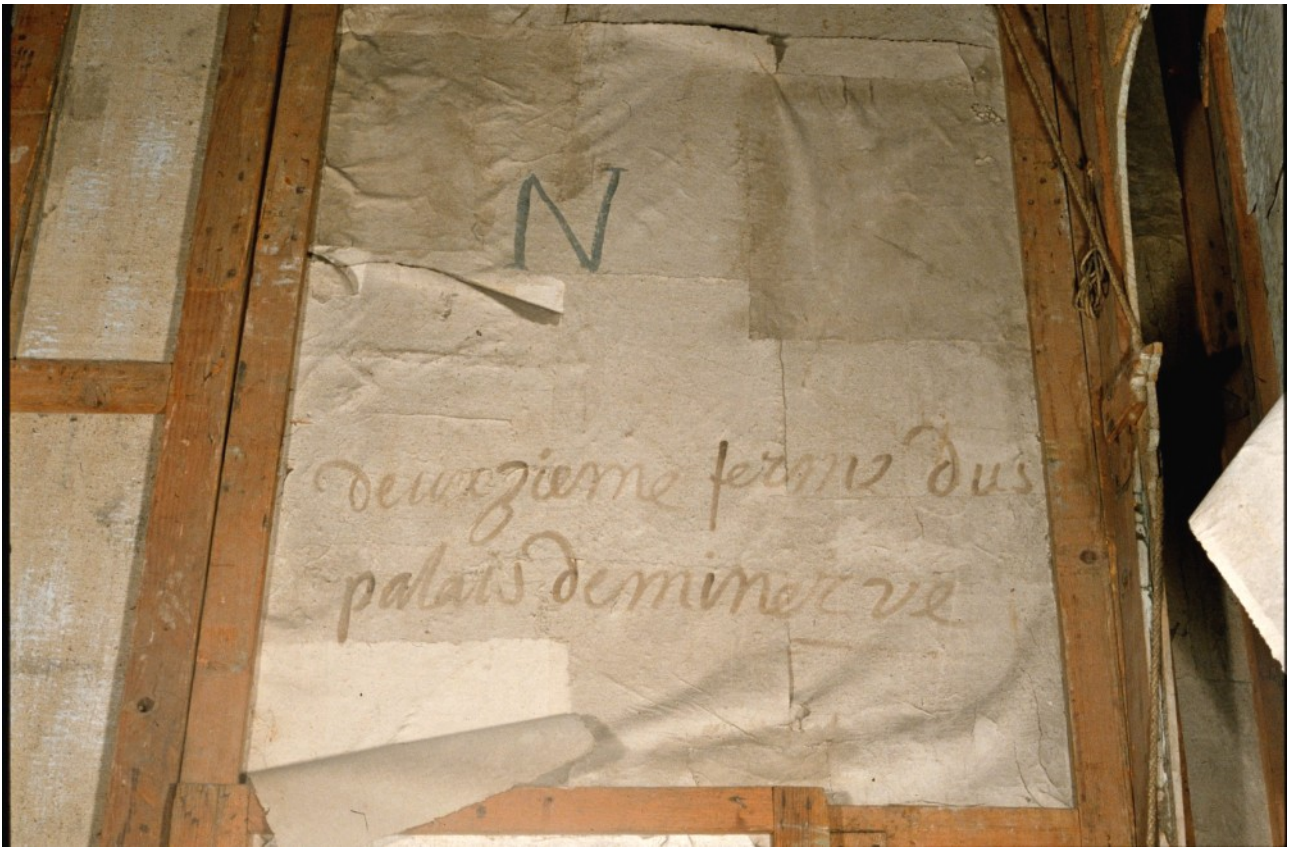 N
deuxzieme ferme dus
palais de minerve